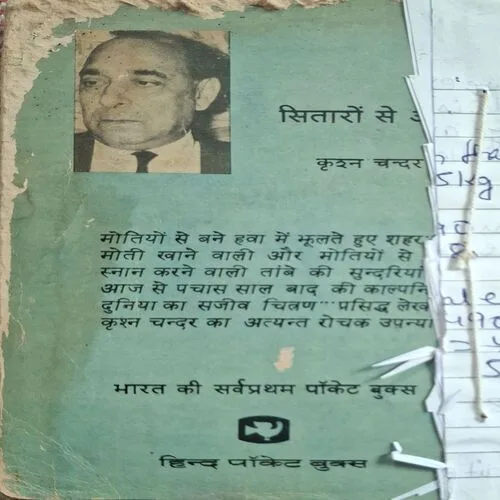 सितारों से
कृश्न चन्दर
मोतियों से बने हवा में झूलते हुए शहर
मोती खाने वाली और मोतियों से
स्नान करने वाली तांबे की सुन्दरियां
आज से पचास साल बाद की काल्पनि
दुनिया का सजीव चित्रण...प्रसिद्ध लेख
कृश्न चन्दर का अत्यन्त रोचक उपन्या
भारत की सर्वप्रथम पॉकेट बुक्स
हिन्द पॉकेट बुक्स
5kg